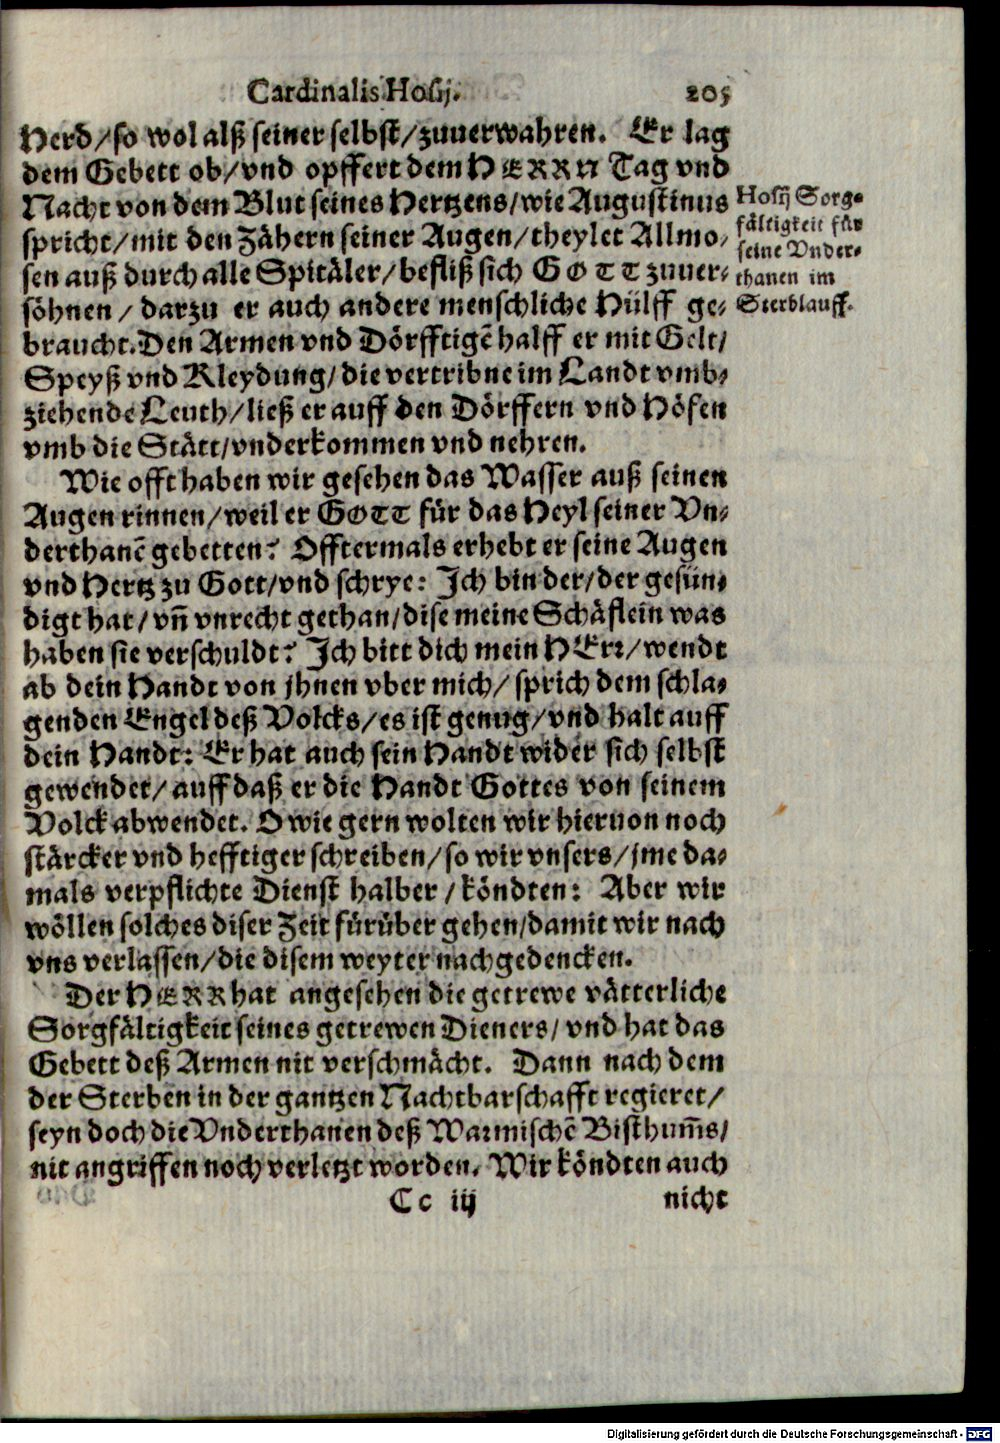 Cardinalis Hosij. 205
Herd/so wol alß seiner selbst/zuuerwahren. Er lag
dem Gebett ob/vnd opffert dem HERRN Tag vnd
Nacht von dem Blut seines Hertzens/wie Augustinus
spricht/mit den Zähern seiner Augen/theylet Allmo-
sen auß durch alle Spitäler/befliß sich GOTT zuuer-
söhnen/darzu er auch andere menschliche Hülff ge-
braucht. Den Armen vnd Dörfftigē halff er mit Gelt/
Speyß vnd Kleydung/die vertribne im Landt vmb-
ziehende Leuth/ließ er auff den Dörffern vnd Höfen
vmb die Stätt/vnderkommen vnd nehren.
Hosij Sorg-
fältigkeit für
seine Vnder-
thanen im
Sterblauff.
Wie offt haben wir gesehen das Wasser auß seinen
Augen rinnen/weil er GOTT für das Heyl seiner Vn-
derthanē gebetten? Offtermals erhebt er seine Augen
vnd Hertz zu Gott/vnd schrye: Ich bin der/der gesün-
digt hat/vn̄ vnrecht gethan/dise meine Schäflein was
haben sie verschuldt? Ich bitt dich mein HErr/wendt
ab dein Handt von jhnen vber mich/sprich dem schla-
genden Engel deß Volcks/es ist genug/vnd halt auff
dein Handt: Er hat auch sein Handt wider sich selbst
gewendet/auff daß er die Handt Gottes von seinem
Volck abwendet. O wie gern wolten wir hieruon noch
stärcker vnd hefftiger schreiben/so wir vnsers/jme da-
mals verpflichte Dienst halber/köndten: Aber wir
wöllen solches diser Zeit fürüber gehen/damit wir nach
vns verlassen/die disem weyter nachgedencken.
Der HERR hat angesehen die getrewe vätterliche
Sorgfältigkeit seines getrewen Dieners/vnd hat das
Gebett deß Armen nit verschmächt. Dann nach dem
der Sterben in der gantzen Nachtbarschafft regieret/
seyn doch die Vnderthanen deß Warmischē Bisthum̄s/
nit angriffen noch verletzt worden. Wir köndten auch
Cc iij nicht
Digitalisierung gefördert durch die Deutsche Forschungsgemeinschaft - DFG